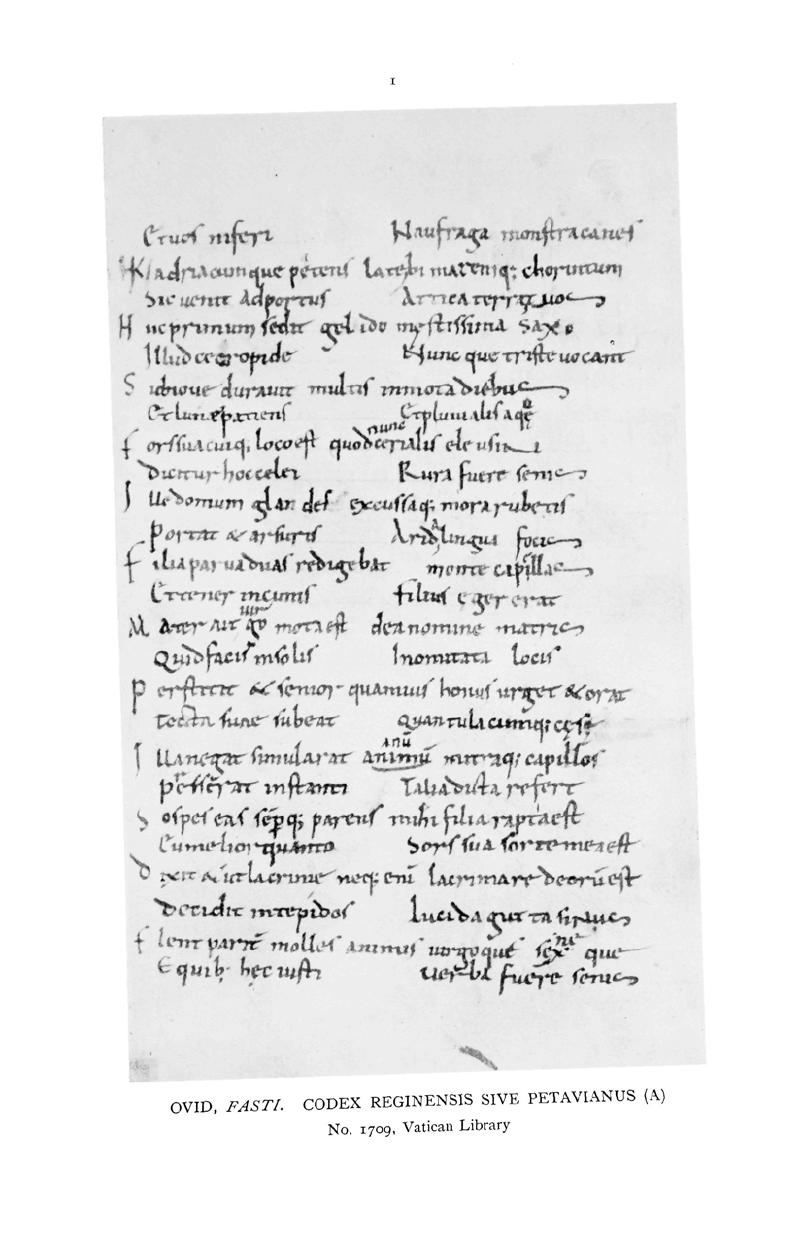 1
Et uos niferi Naufraga monstra canes
adriacumque petens latebi maremq; chorintum
Sic uenit Ad portus Attica terra uos
Hic primum sedit gelido męstissima saxo
Illud cecropide Nunc que triste uocant
Subioue durauit multis inmota diebus
Et lunę patiens Et pluuialis aquę
forssua cuiq; loco est quod nunc cerialis eleusin
Dicitur hoc celei Rura fuere senis
Ille domum glandes excussaq; mora rubetis
Portat & arsuris Arida lingua focis
filia parua duas redigebat monte capellas
Et tener incunis filius eger erat
Mater Ait mota est dea nomine matris
Quid facis insolis Inomitata locis
Perstitit & senior quamuis honus urget & orat
tecta sune subeat Quantulacumq;
Illa negat simularat animū anū mitraq; capillos
instanti Talia dicta refert
Sospes eas sēpq; parens mihi filia rapta est
Cu melior quanto Sors sua sorte mea est
Dixit & ut lacrime neq; enī lacrimare deorū est
Decidit intepidos Lucida gutta sinus
flent parit̄ molles animis uirgoque senex que
E quib; hęc iusti uerba fuere senis
OVID, FASTI. CODEX REGINENSIS SIVE PETAVIANUS (A)
No. 1709, Vatican Library